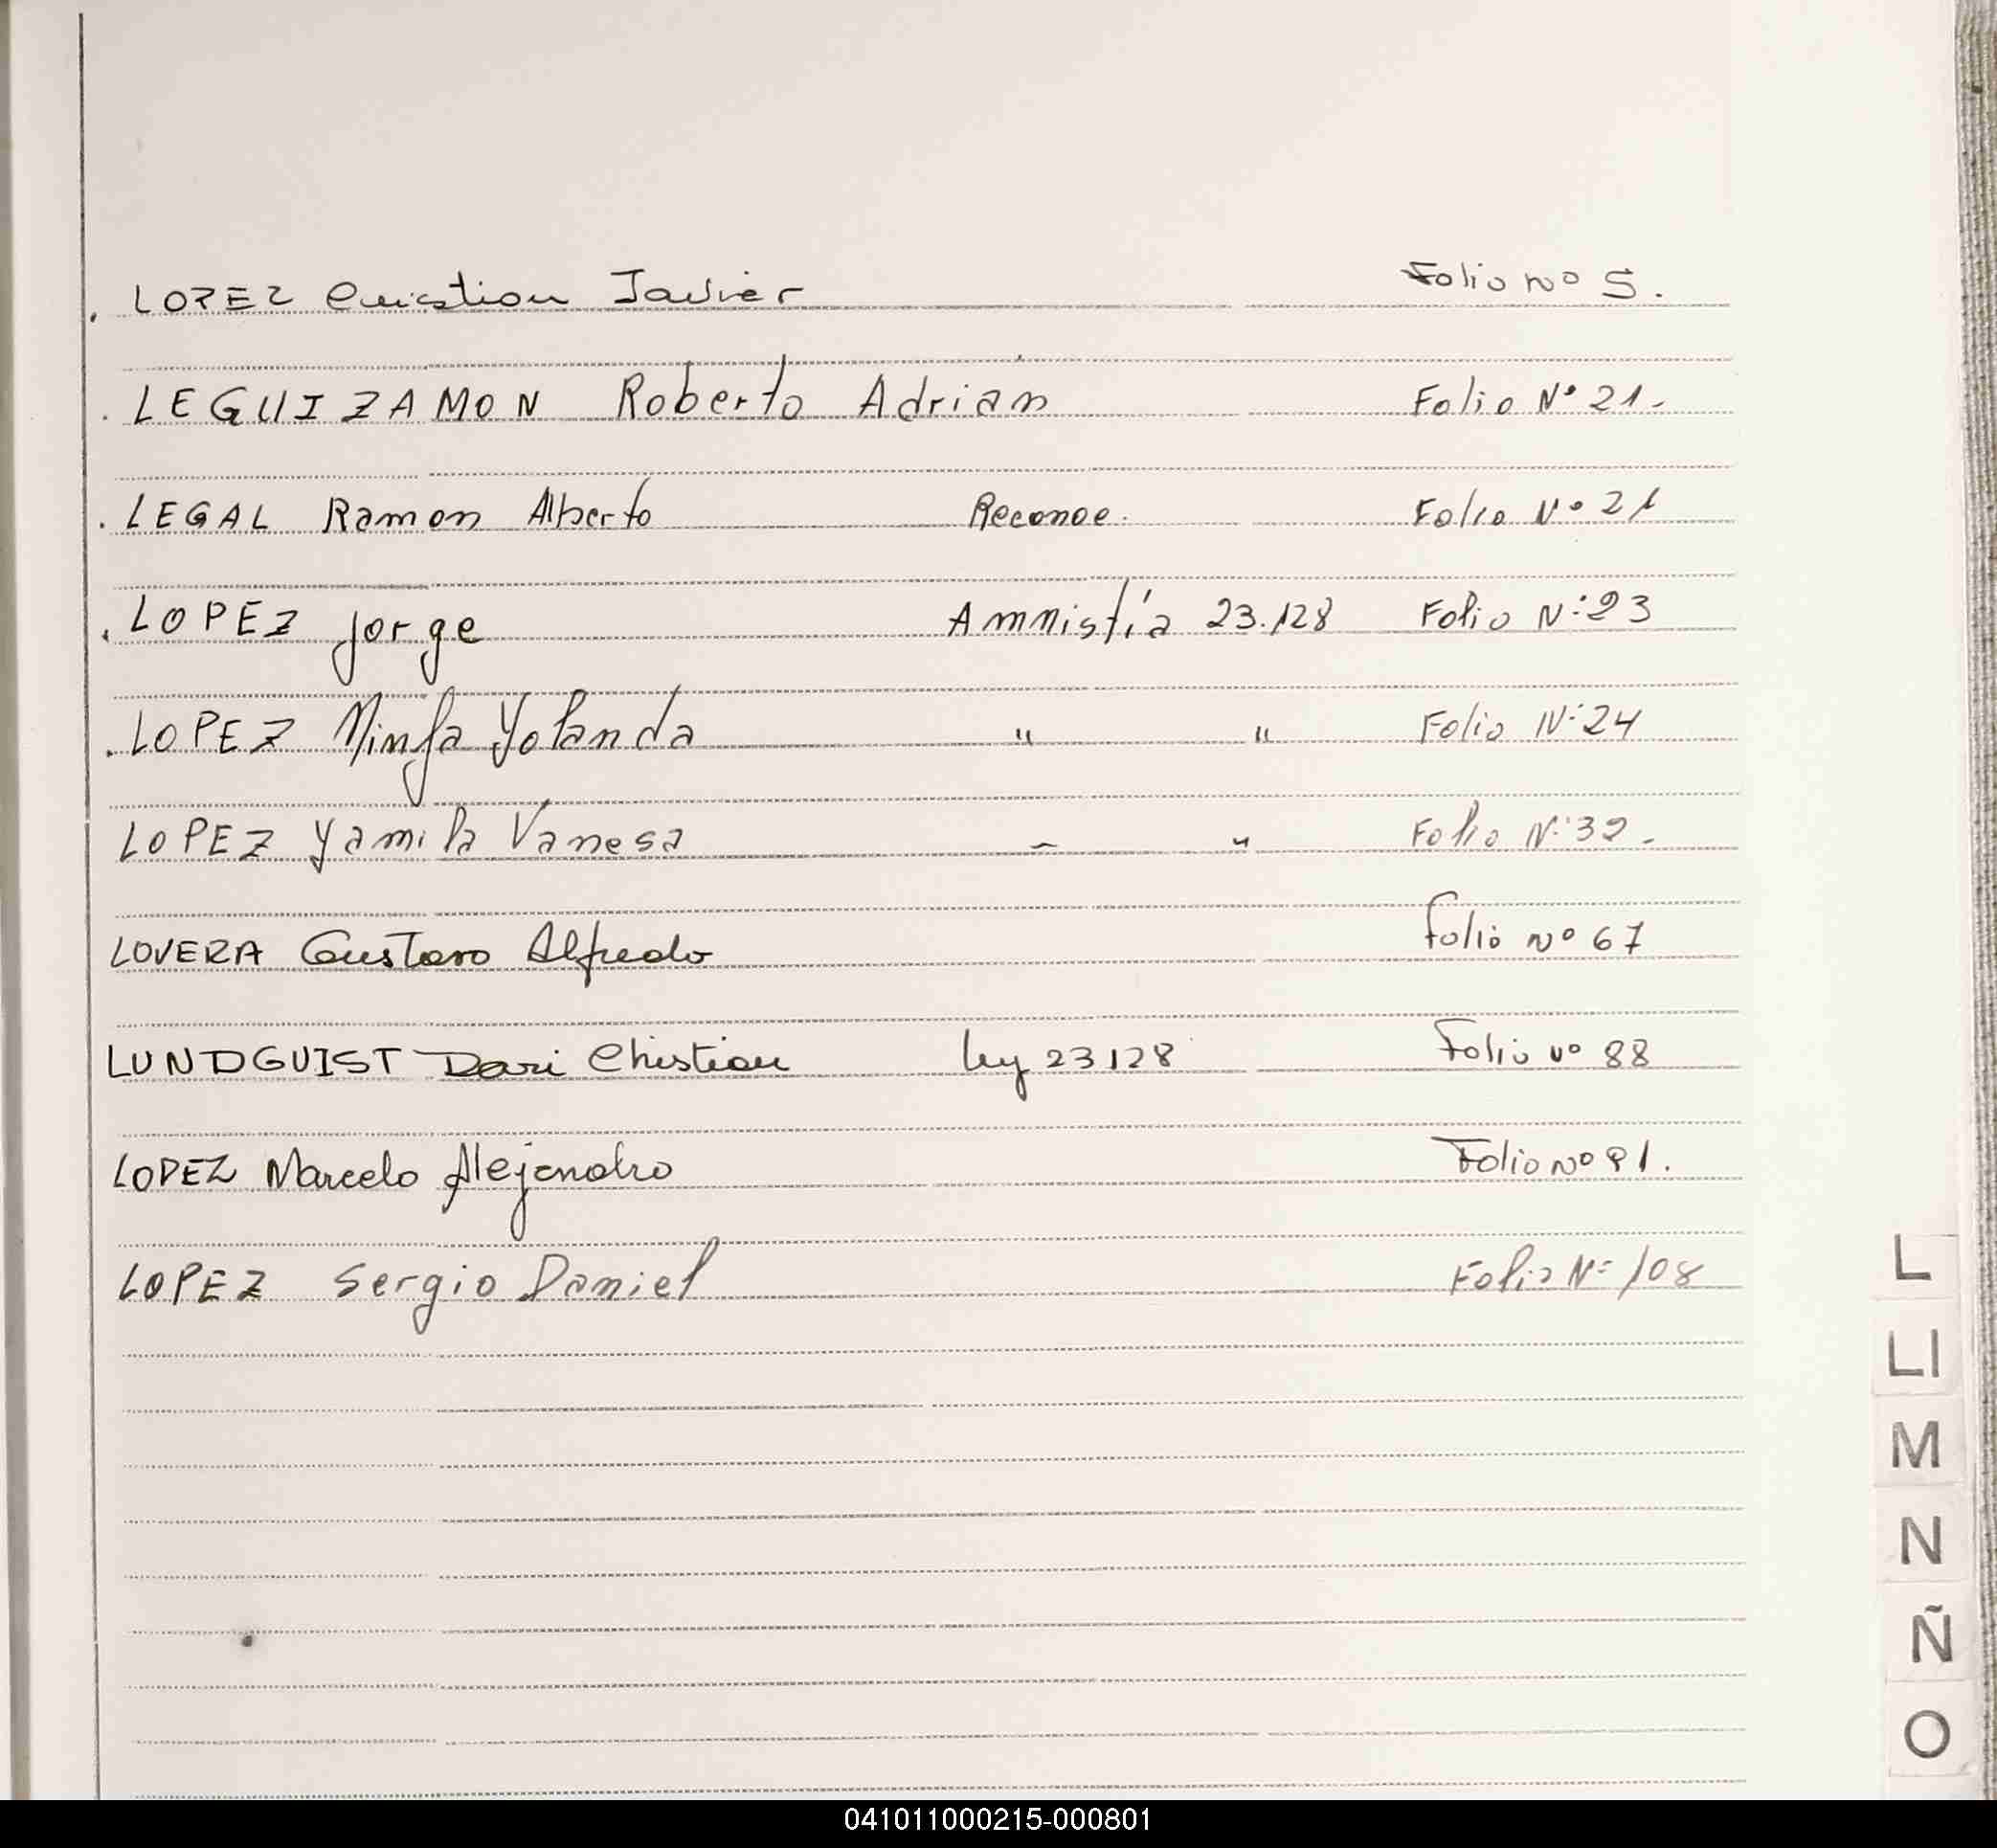 . LOPEZ Cristian Javier Folio Nº 5.
. LEGUIZAMON Roberto Adrián Folio Nº 21-
. LEGAL Ramon Alberto Reconoc. Folio Nº 21
. LOPEZ Jorge Amnistía 23.128 Folio Nº 23
. LOPEZ Ninfa Yolanda " " Folio Nº 24
LOPEZ Yamila Vanesa " " Folio Nº 32-
LOVERA Gustavo Alfredo Folio Nº 67
LUNDGUIST Dari Christian Ley 23128 Folio Nº 88
LOPEZ Marcelo Alejandro Folio Nº 91.
LOPEZ Sergio Daniel Folio Nº 108
L
LI
M
N
Ñ
O
041011000215-000801